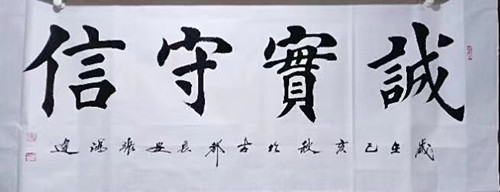 誠實守信
歲在己亥秋於古都長安張鴻達